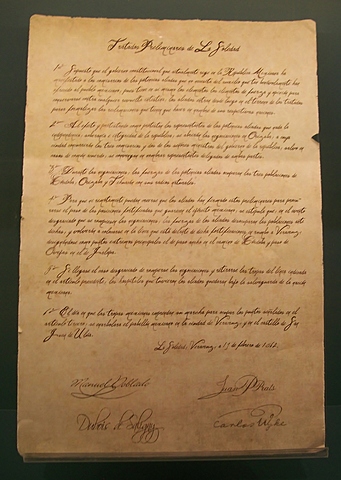 Tratados Preliminares de La Soledad
1º Supuesto que el gobierno constitucional que actualmente rige en la República Mexicana ha
manifestado a los comisarios de las potencias aliadas que no necesita del auxilio que tan benévolamente han
ofrecido al pueblo mexicano, pues tiene en sí mismo los elementos de fuerza y opinión para
conservarse contra cualquier revuelta intestina, los aliados entran desde luego en el terreno de los tratados
para formalizar las reclamaciones que tienen que hacer en nombre de sus respectivas naciones.
2º Al efecto y protestando como protestan los representantes de las potencias aliadas que nada
independencia, soberanía e integridad de la república, se abrirán las negociaciones en Orizaba, a cuya
ciudad concurrirán los tres comisarios y dos de los señores ministros del gobierno de la república, salvo en
caso de mutuo convenio se convengan en nombrar representantes delegados de ambas partes.
3º Durante las negociaciones, las fuerzas de las potencias aliadas ocuparán las tres poblaciones de
Córdoba, Orizaba y Tehuacán con sus radios naturales.
4º Para que ni remotamente pueda creerse que los aliados han firmado estos preliminares para
el paso de las posiciones fortificadas que guarnece el ejército mexicano, se estipula que, en el evento
desgraciado que se rompiesen las negociaciones, las fuerzas de los aliados desocuparán las poblaciones
dichas, y volverán a colocarse en la línea que está delante de dichas fortificaciones, en rumbo a Veracruz,
designándose como puntos extremos principales el de paso ancho en el camino de Córdoba y paso de
Ovejas en el de Jalapa.
5º Si llegase el caso desgraciado de romperse las negociaciones y retirarse las tropas del línea indicada
en el artículo precedente, los hospitales que tuvieren los aliados quedarán bajo la salvaguardia de la nación
mexicana.
6º El día en que las tropas emprendan su marcha para ocupar los puntos señalados en el
artículo tercero, se enarbolará el pabellón mexicano en la ciudad de Veracruz y en el castillo de San
Juan de Ulúa.
La Soledad, Veracruz, a 19 de febrero de 1862.
Manuel Doblado Juan P Prim
Dubois de Saligny Carlos Wyke